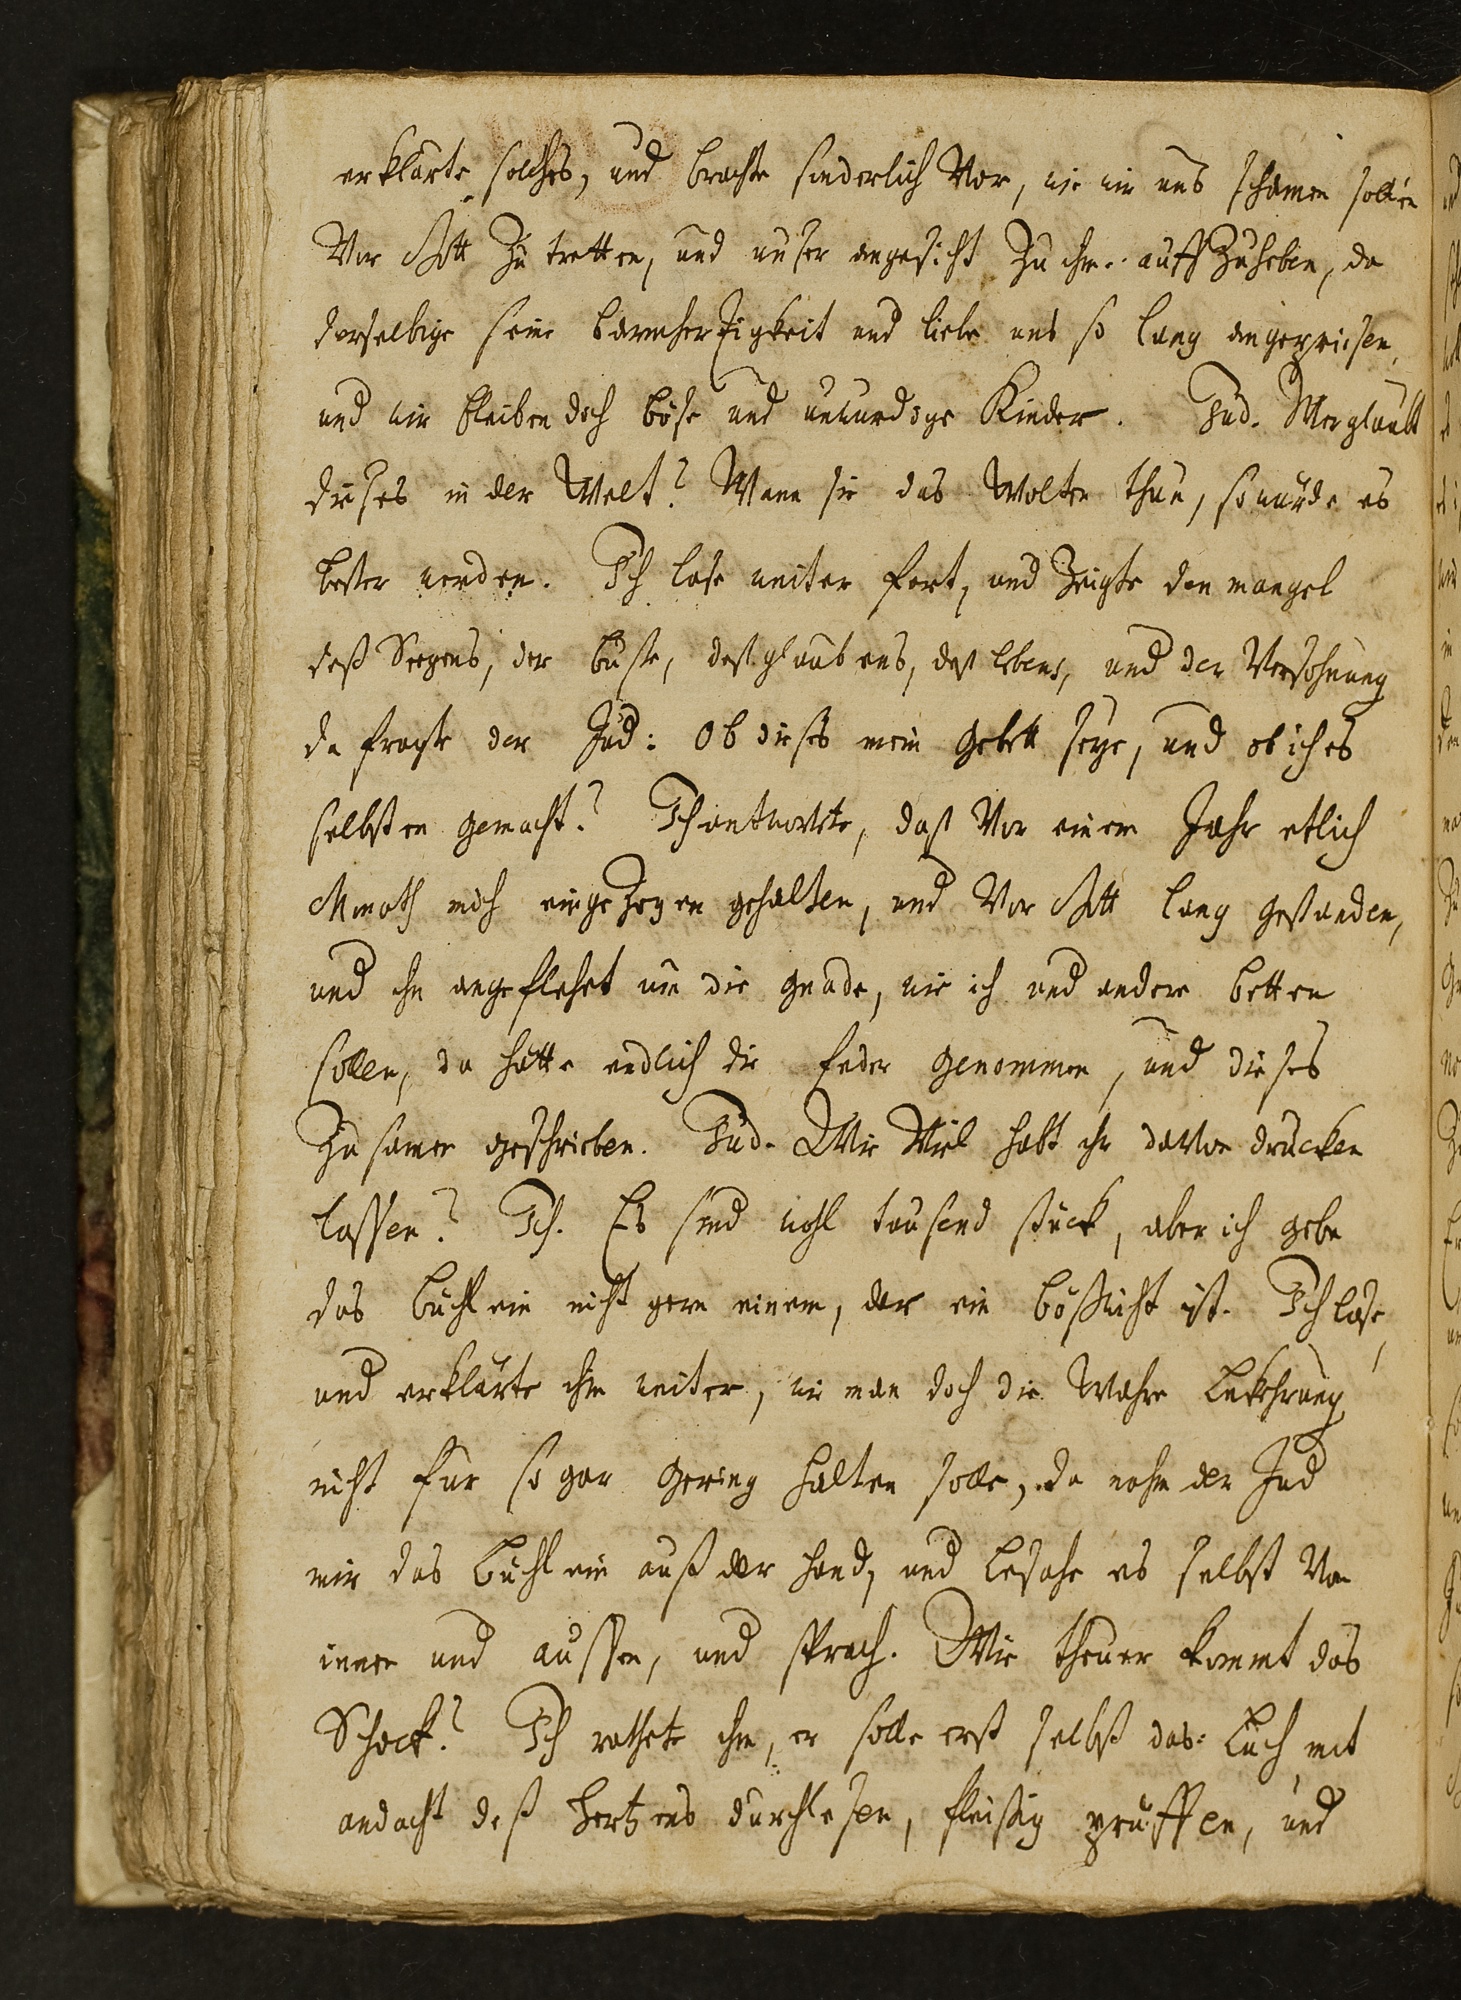 erklärte solches, und brachte sonderlich Vor, wie wir uns schämen sollen
Vor Gott Zu tretten, und unser angesicht Zu ihm auff Zuheben, da
derselbige seine barmherzigkeit und liebe uns so lang angepriesen,
und wir bleiben doch böse und unwurdige Kinder. Jud. Wer glaubt
dieses in der Welt? Wann sie das Wolten thun, so wurde es
besser werden. Ich lase weiter fort, und Zeigte den mangel
deß Seegens, der busse, deß glaubens, deß lebens, und der Versohnung
da fragte der Jud: Ob dieses mein Gebett seye, und ob ich es
selbsten gemacht? Ich antwortete, daß Vor einem Jahr etlich
Monath mich eingezogen gehalten, und Vor Gott lang gestanden,
und ihn angeflehet um die gnade, wie ich und andere betten
sollen, da hätte endlich die feder genommen, und dieses
Zusamen geschrieben. Jud. Wie Viel habt ihr davon drucken
lassen? Ich. Es sind wohl tausend stück, aber ich gebe
das buchlein nicht gern einem, der ein bößwicht ist. Ich lase,
und erklärte ihm weiter, wie man doch die Wahre bekehrung
nicht für so gar Gering halten solle, da nahm der Jud
mir das buchlein auß der hand, und besahe es selbst Von
innen und aussen, und sprach. Wie theuer kommt das
Schock? Ich rathete ihm, er solle erst selbst das buch mit
andacht deß hertzens durchlesen, fleissig prüffen, und